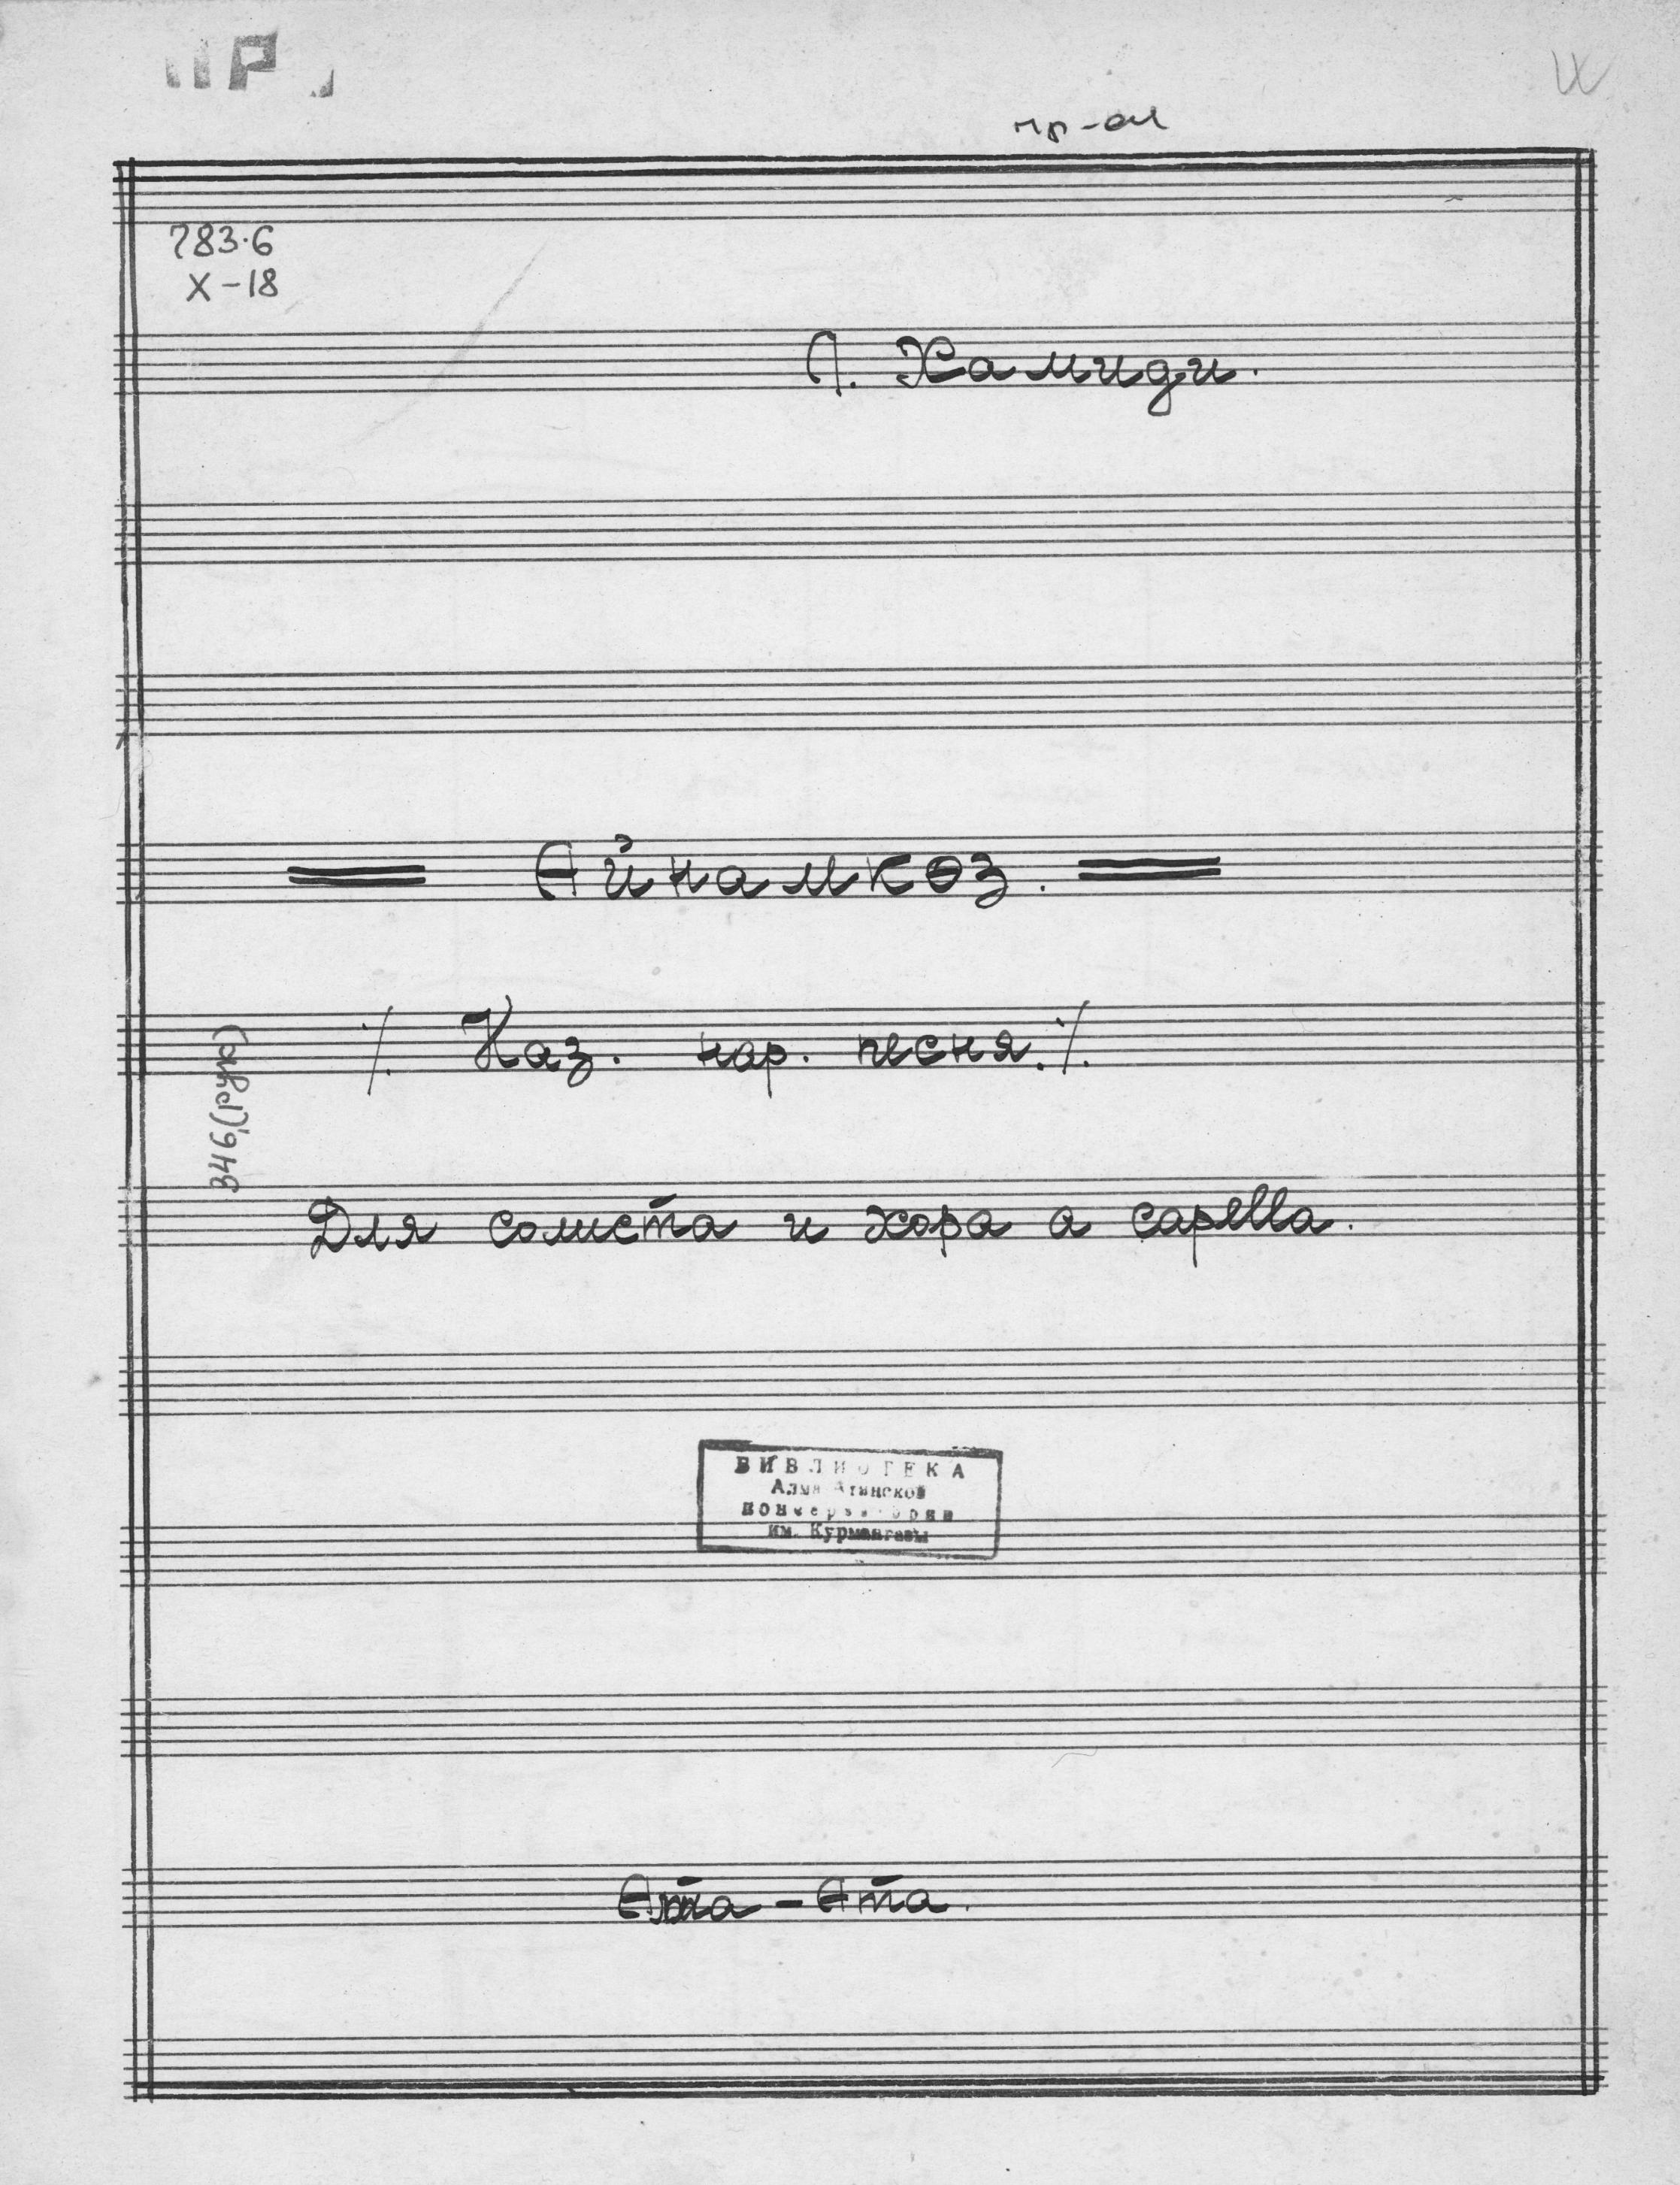 пр-ал
783.6
Х-18
Л. Хамиди.
Айнамкөз.
/. Каз. нар. песня. /.
346 (рук)
Для солиста и хора a capella.
БИБЛИОТЕКА
Алма Атинской
консерватории
им. Курмангазы
Алма-Ата.